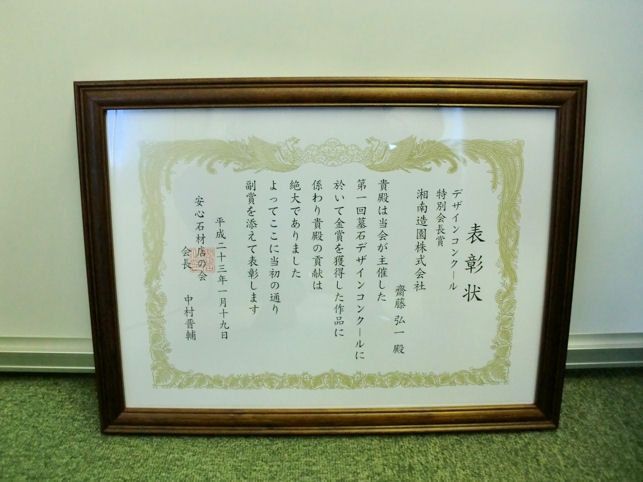 表彰状
デザインコンクール
特別会長賞
湘南造園株式会社
齋藤 弘一 殿
貴殿は当会が主催した
第一回墓石デザインコンクールに
於いて金賞を獲得した作品に
係わり貴殿の貢献は
絶大でありました
よってここに当初の通り
副賞を添えて表彰します
平成二十三年一月十九日
安心石材店の会
会長 中村晋輔